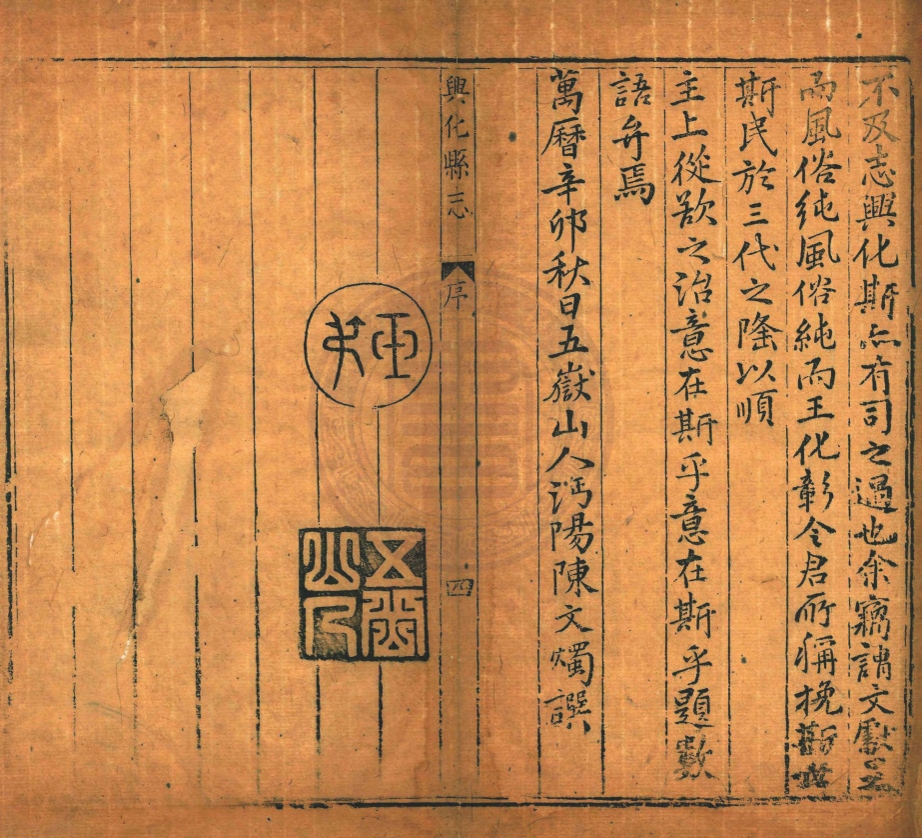 不及志興化斯亦有司之過也余竊謂文獻足
而風俗純風俗純而王化彰令君所稱挽斯世
斯民於三代之隆以順
主上從欲之治意在斯乎意在斯乎題數
語弁焉
萬曆辛卯秋日五嶽山人沔陽陳文燭譔
興化縣志 序 四
玉叔
五嶽山人